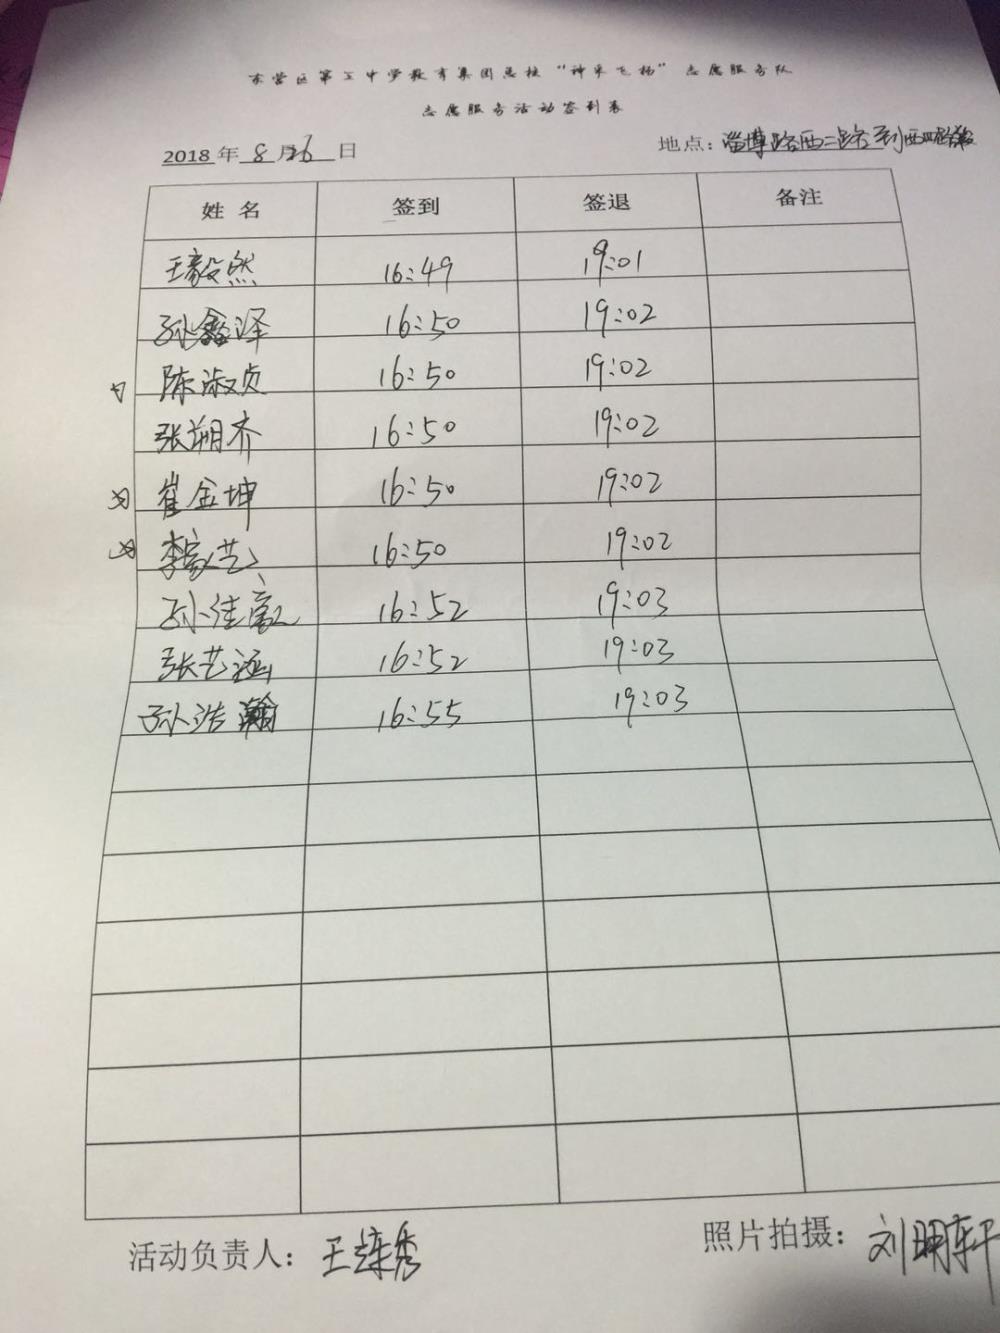 东营区第三中学教育集团总校“神采飞杨”志愿服务队
志愿服务活动签到表
2018年 8月26日 地点：淄博路西二路到西四路
姓名 签到 签退 备注
王毅然 16:49 19:01
孙鑫泽 16:50 19:02
陈淑贞 16:50 19:02
张朔齐 16:50 19:02
崔金坤 16:50 19:02
李家艺 16:50 19:02
孙佳豪 16:52 19:03
张艺涵 16:52 19:03
孙浩瀚 16:55 19:03
活动负责人：王莲秀 照片拍摄：刘明轩